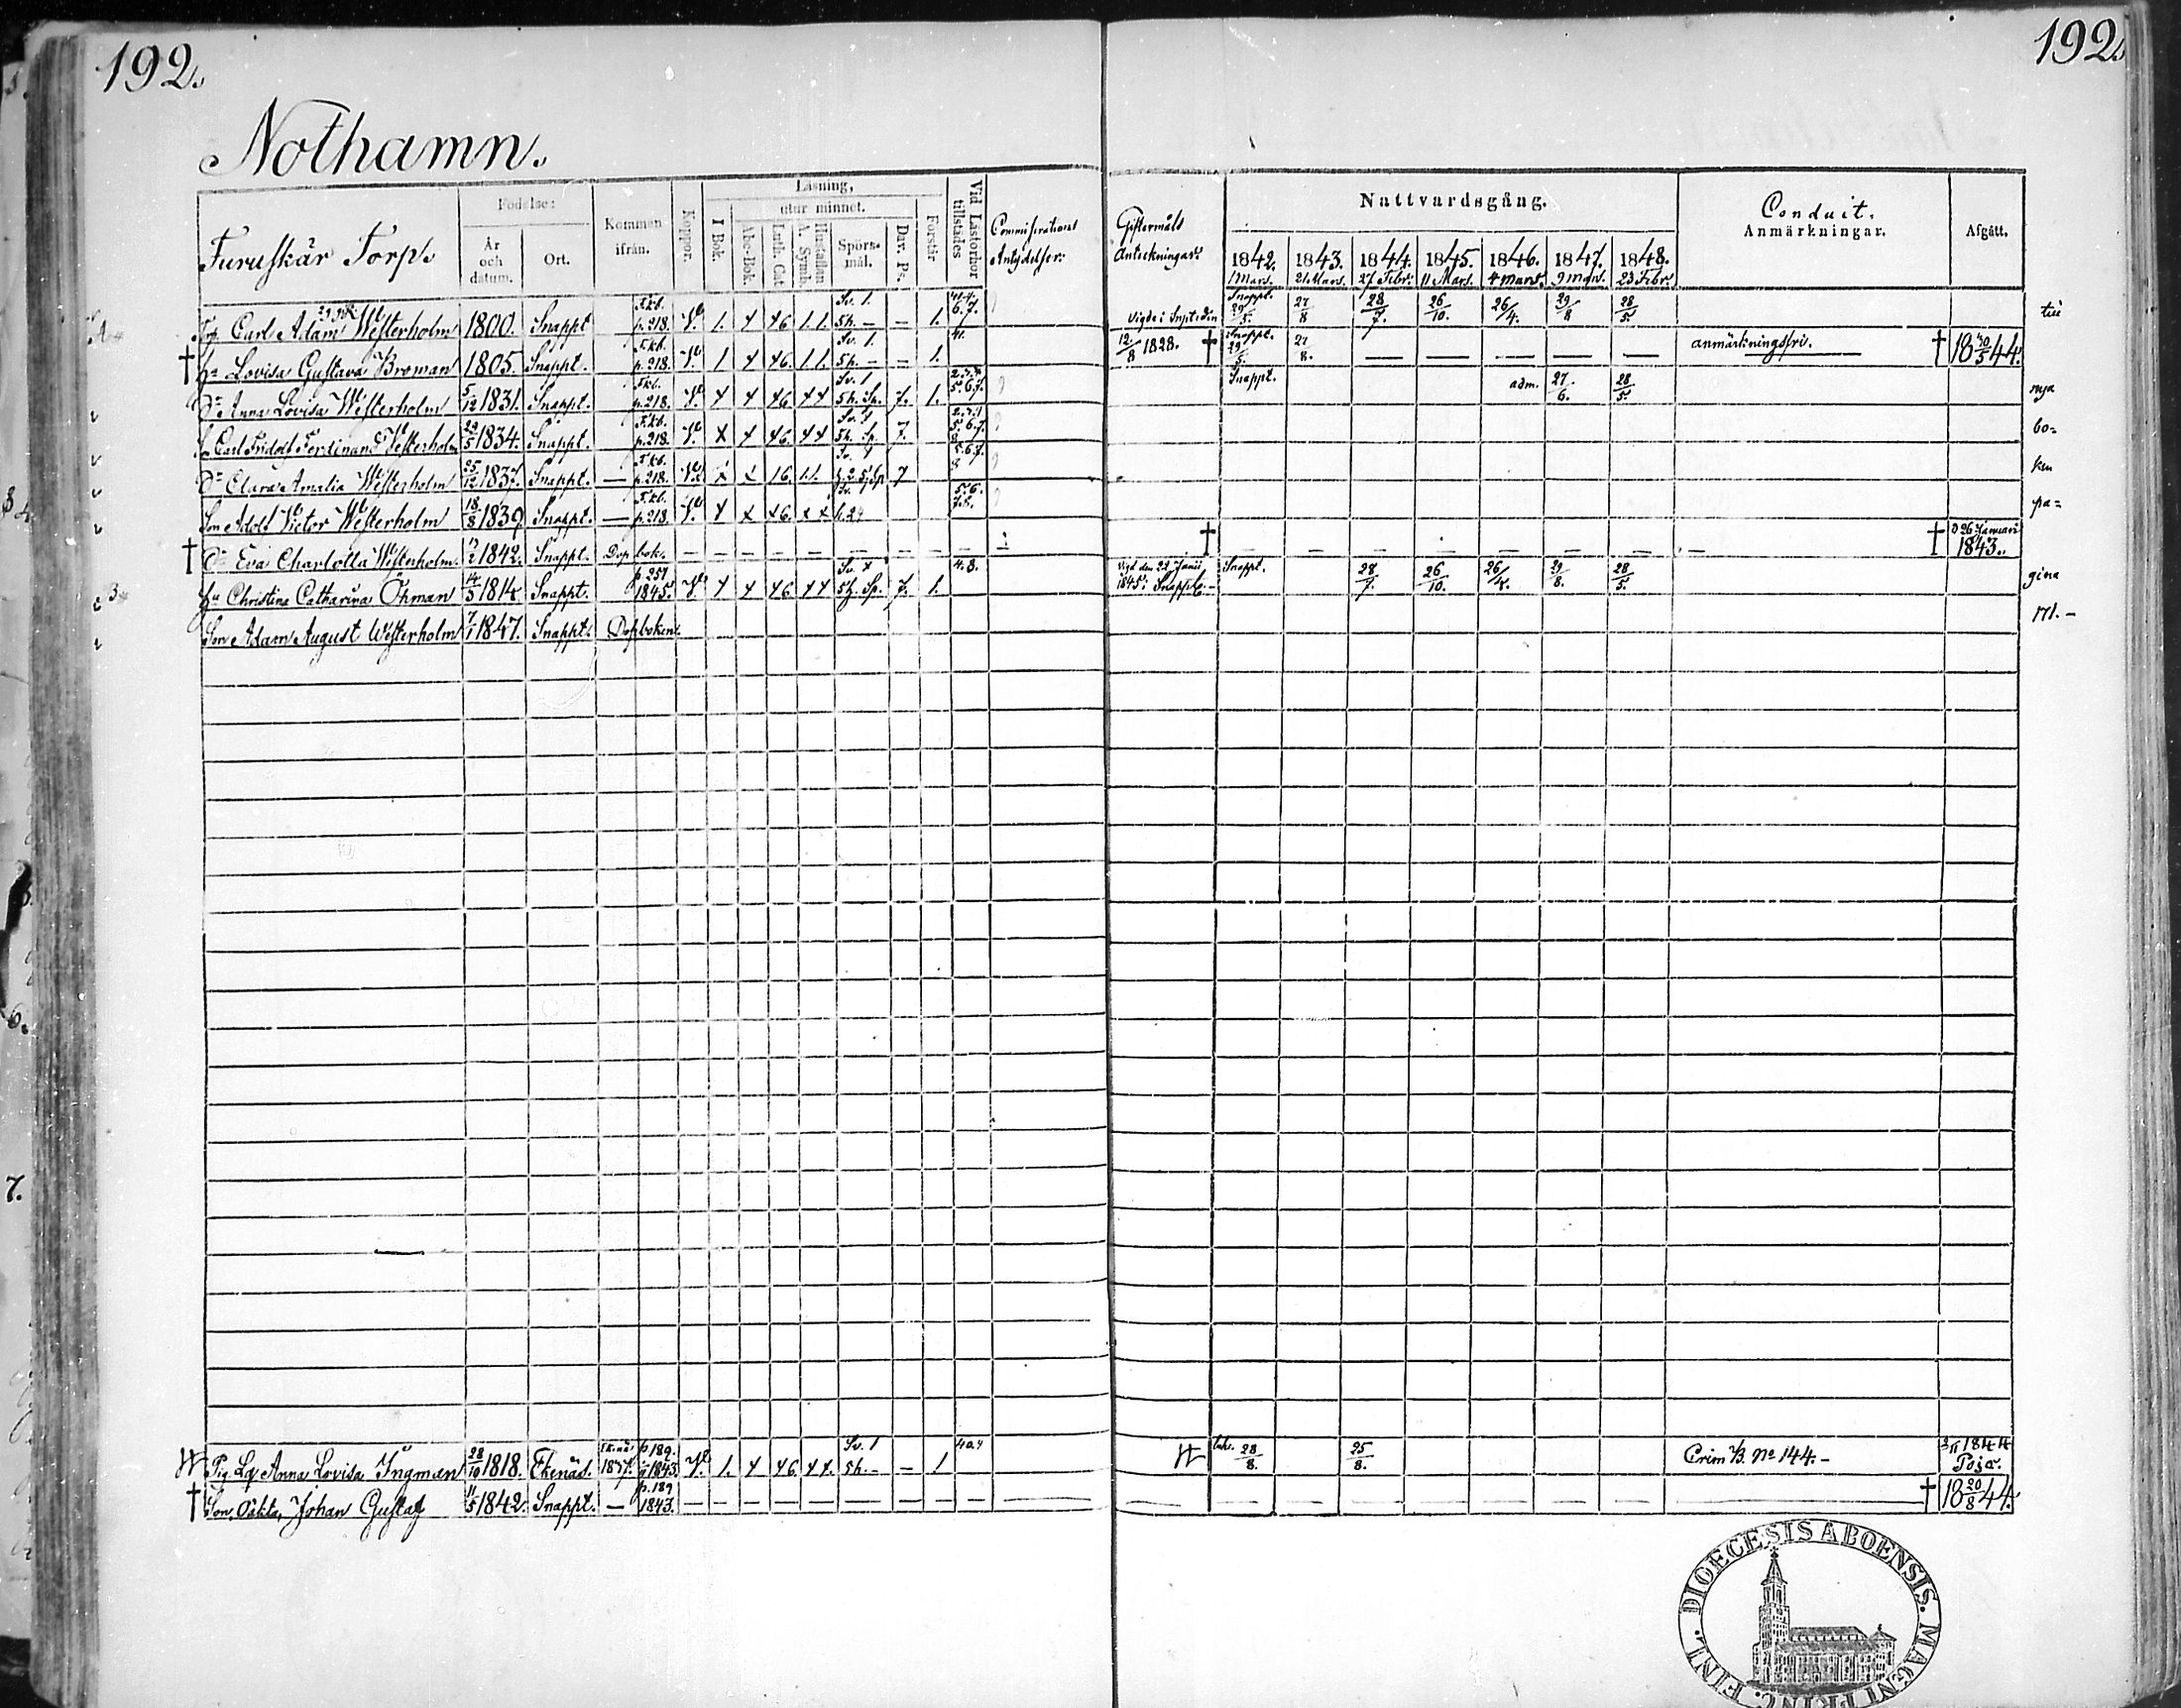 192.
192.
Nothamn.
Furuskär Torp.
Födelse:
År och datum.
Ort.
Kommen ifrån.
Koppor.
Läsning,
I Bok.
utur minnet.
Abc-Bok.
Luth. Cat.
Hustaflan A. Symb.
Spörsmål.
Dav. Ps.
Förstår
Vid Läsförhör tillstädes
Communications Antydelser:
Giftermåls Anteckningar:
Nattvardsgång.
1842. 1843. 1844. 1845. 1846. 1847. 1848.
1 Mars. 21 Mars. 27 Febr. 11 Mars. 4 mars. 9 mars. 23 Febr.
Conduit.
Anmärkningar.
Afgått.
Torp. Carl Adam Westerholm 1800. Snappt. F.kb. p. 218. 1. 46 1. 1. Sv. 1. 5h. — — 1. Vigde i Snpt: den Snappt. 29/5. 27/8 28/7. 26/10. 26/4. 29/8 28/5. till
† Hu Lovisa Gustava Broman 1805. Snappt. F.kb. p. 218. 1 46. 1. 1. Sv. 1. 5h. — — 1. 41. 12/8 1828. † Snappt. 29/5. 27/8. — — — — — anmärkningsfri. † 18 30/5 44.
Dr Anna Lovisa Westerholm 5/12 1831. Snappt. F.kb. p. 218. 46. Sv. 1 5h. Sp. 7. 1. Snappt. adm. 27/6. 28/5. nya
Carl Fridolf Ferdinand Westerholm 29/5 1834. Snappt. F.kb. p. 218. 46. 5h. Sp. 7. bo-
Dr Clara Amalia Westerholm 25/12 1837. Snappt. — F.kb. p. 218. 7 ken
Son Adolf Victor Westerholm 18/8 1839 Snappt. — F.kb. p. 218. 46. pa-
† Dr Eva Charlotta Westerholm. 1842. Snappt. Dop bok. — — — — — — — — † — — — — — — — — † d 26 Januari 1843.
Hu Christina Catharina Öhman 14/5 1814 Snappt. p 257 1845. 46 5h. Sp. 7. 1. 4. 8. Vigd den 22 Junii 1845 i Snappt. Snappt. 28/7. 26/10. 26/4. 29/8. 28/5. gina
Son Adam August Westerholm 7/1 1847. Snappt. Dopboken. 171. -
Pig. Lq. Anna Lovisa Ingman 28/10 1818. Ekenäs. 1837. p 189. 1843. 1. 46. Sv. 1 5h. — — 1 28/8. 25/8. Crim B. No 144. — 1844 Pojo.
† Son, Oäkta, Johan Gustaf 11/5 1842. Snappt. — p. 189 1843. — — — — — — — — — — — — — — † 18 20/8 44.
DIOECESIS ABOENSIS. MAGNI PRINC. FINL.